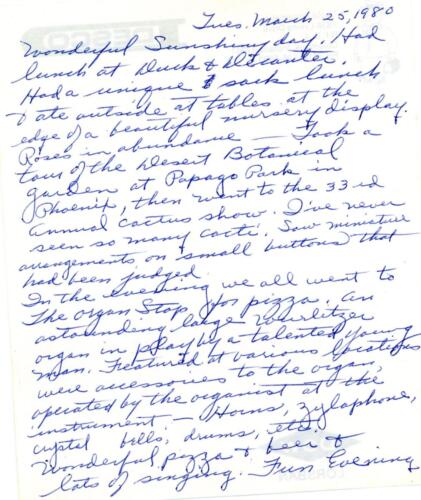 Tues. March 25, 1980
Wonderful Sunshiny day. Had
lunch at Duck & Decanter.
Had a unique sack lunch
& ate outside at tables at the
edge of a beautiful nursery display.
Roses in abundance — Took a
tour of the Desert Botanical
Garden at Papago Park in
Phoenix, then went to the 33rd
Annual Cactus show. I've never
seen so many cacti. Saw miniature
arrangements on small buttons that
had been judged.
In the evening we all went to
The Organ Stop for pizza. An
astounding large Wurlitzer
organ in play by a talented young
man. Featured at various locations
were accessories to the organ,
operated by the organist at the
instrument — Horns, zylophone,
crystal bells, drums, etc.
Wonderful pizza & beer &
lots of singing. Fun Evening